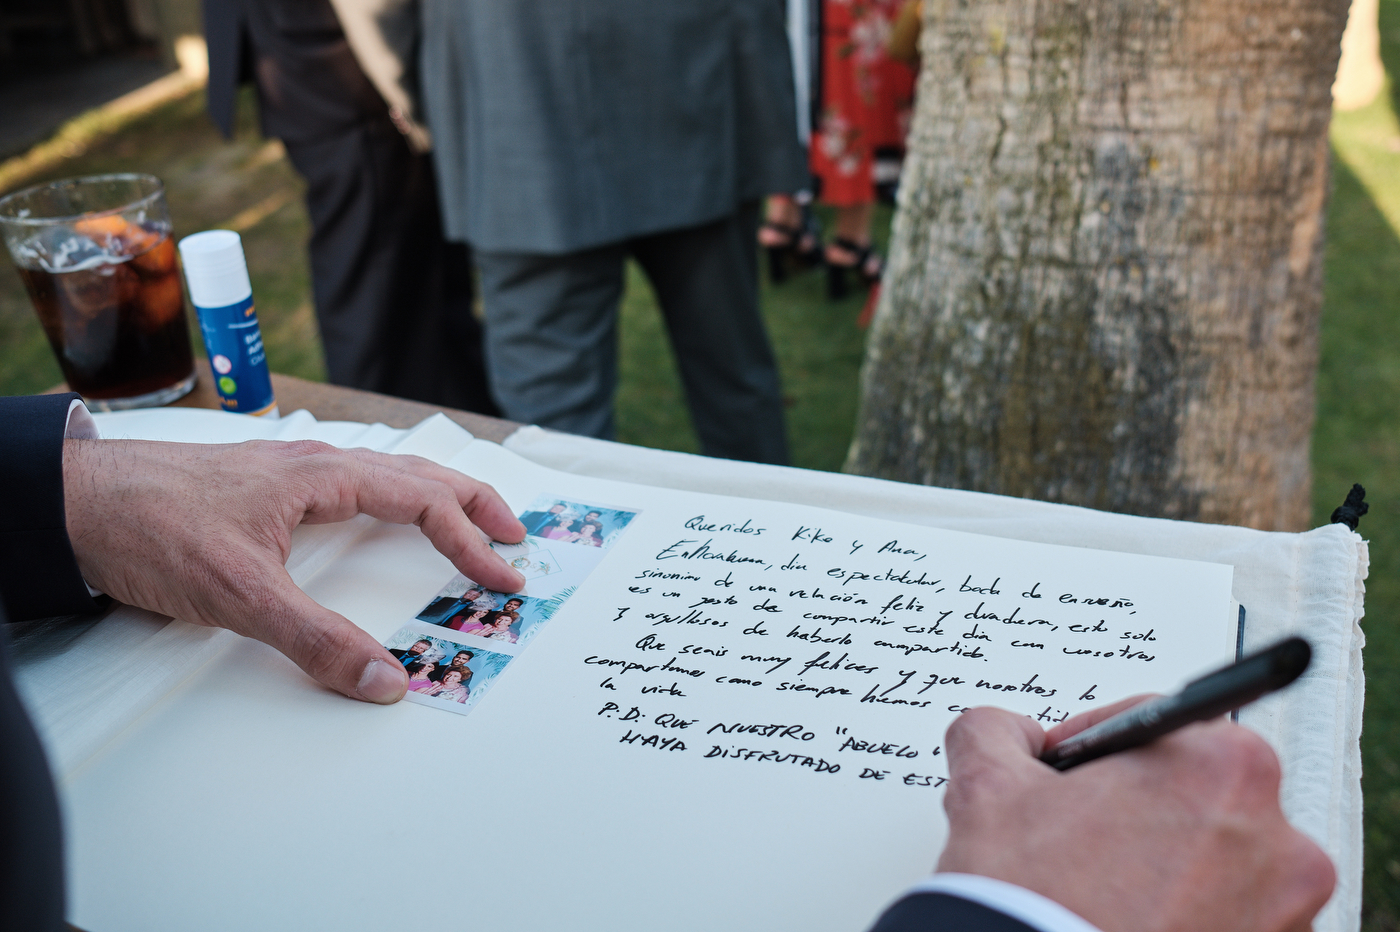 Queridos Kike y Ana,
Enhorabuena, dia espectacular, boda de ensueño,
sinonimo de una relación feliz y duradera, esto solo
es un gesto de compartir este dia con vosotros
y orgullosos de haberlo compartido.
Que seais muy felices y que nosotros lo
compartamos como siempre hemos
la vida
P.D: QUE NUESTRO "ABUELO"
HAYA DISFRUTADO DE EST